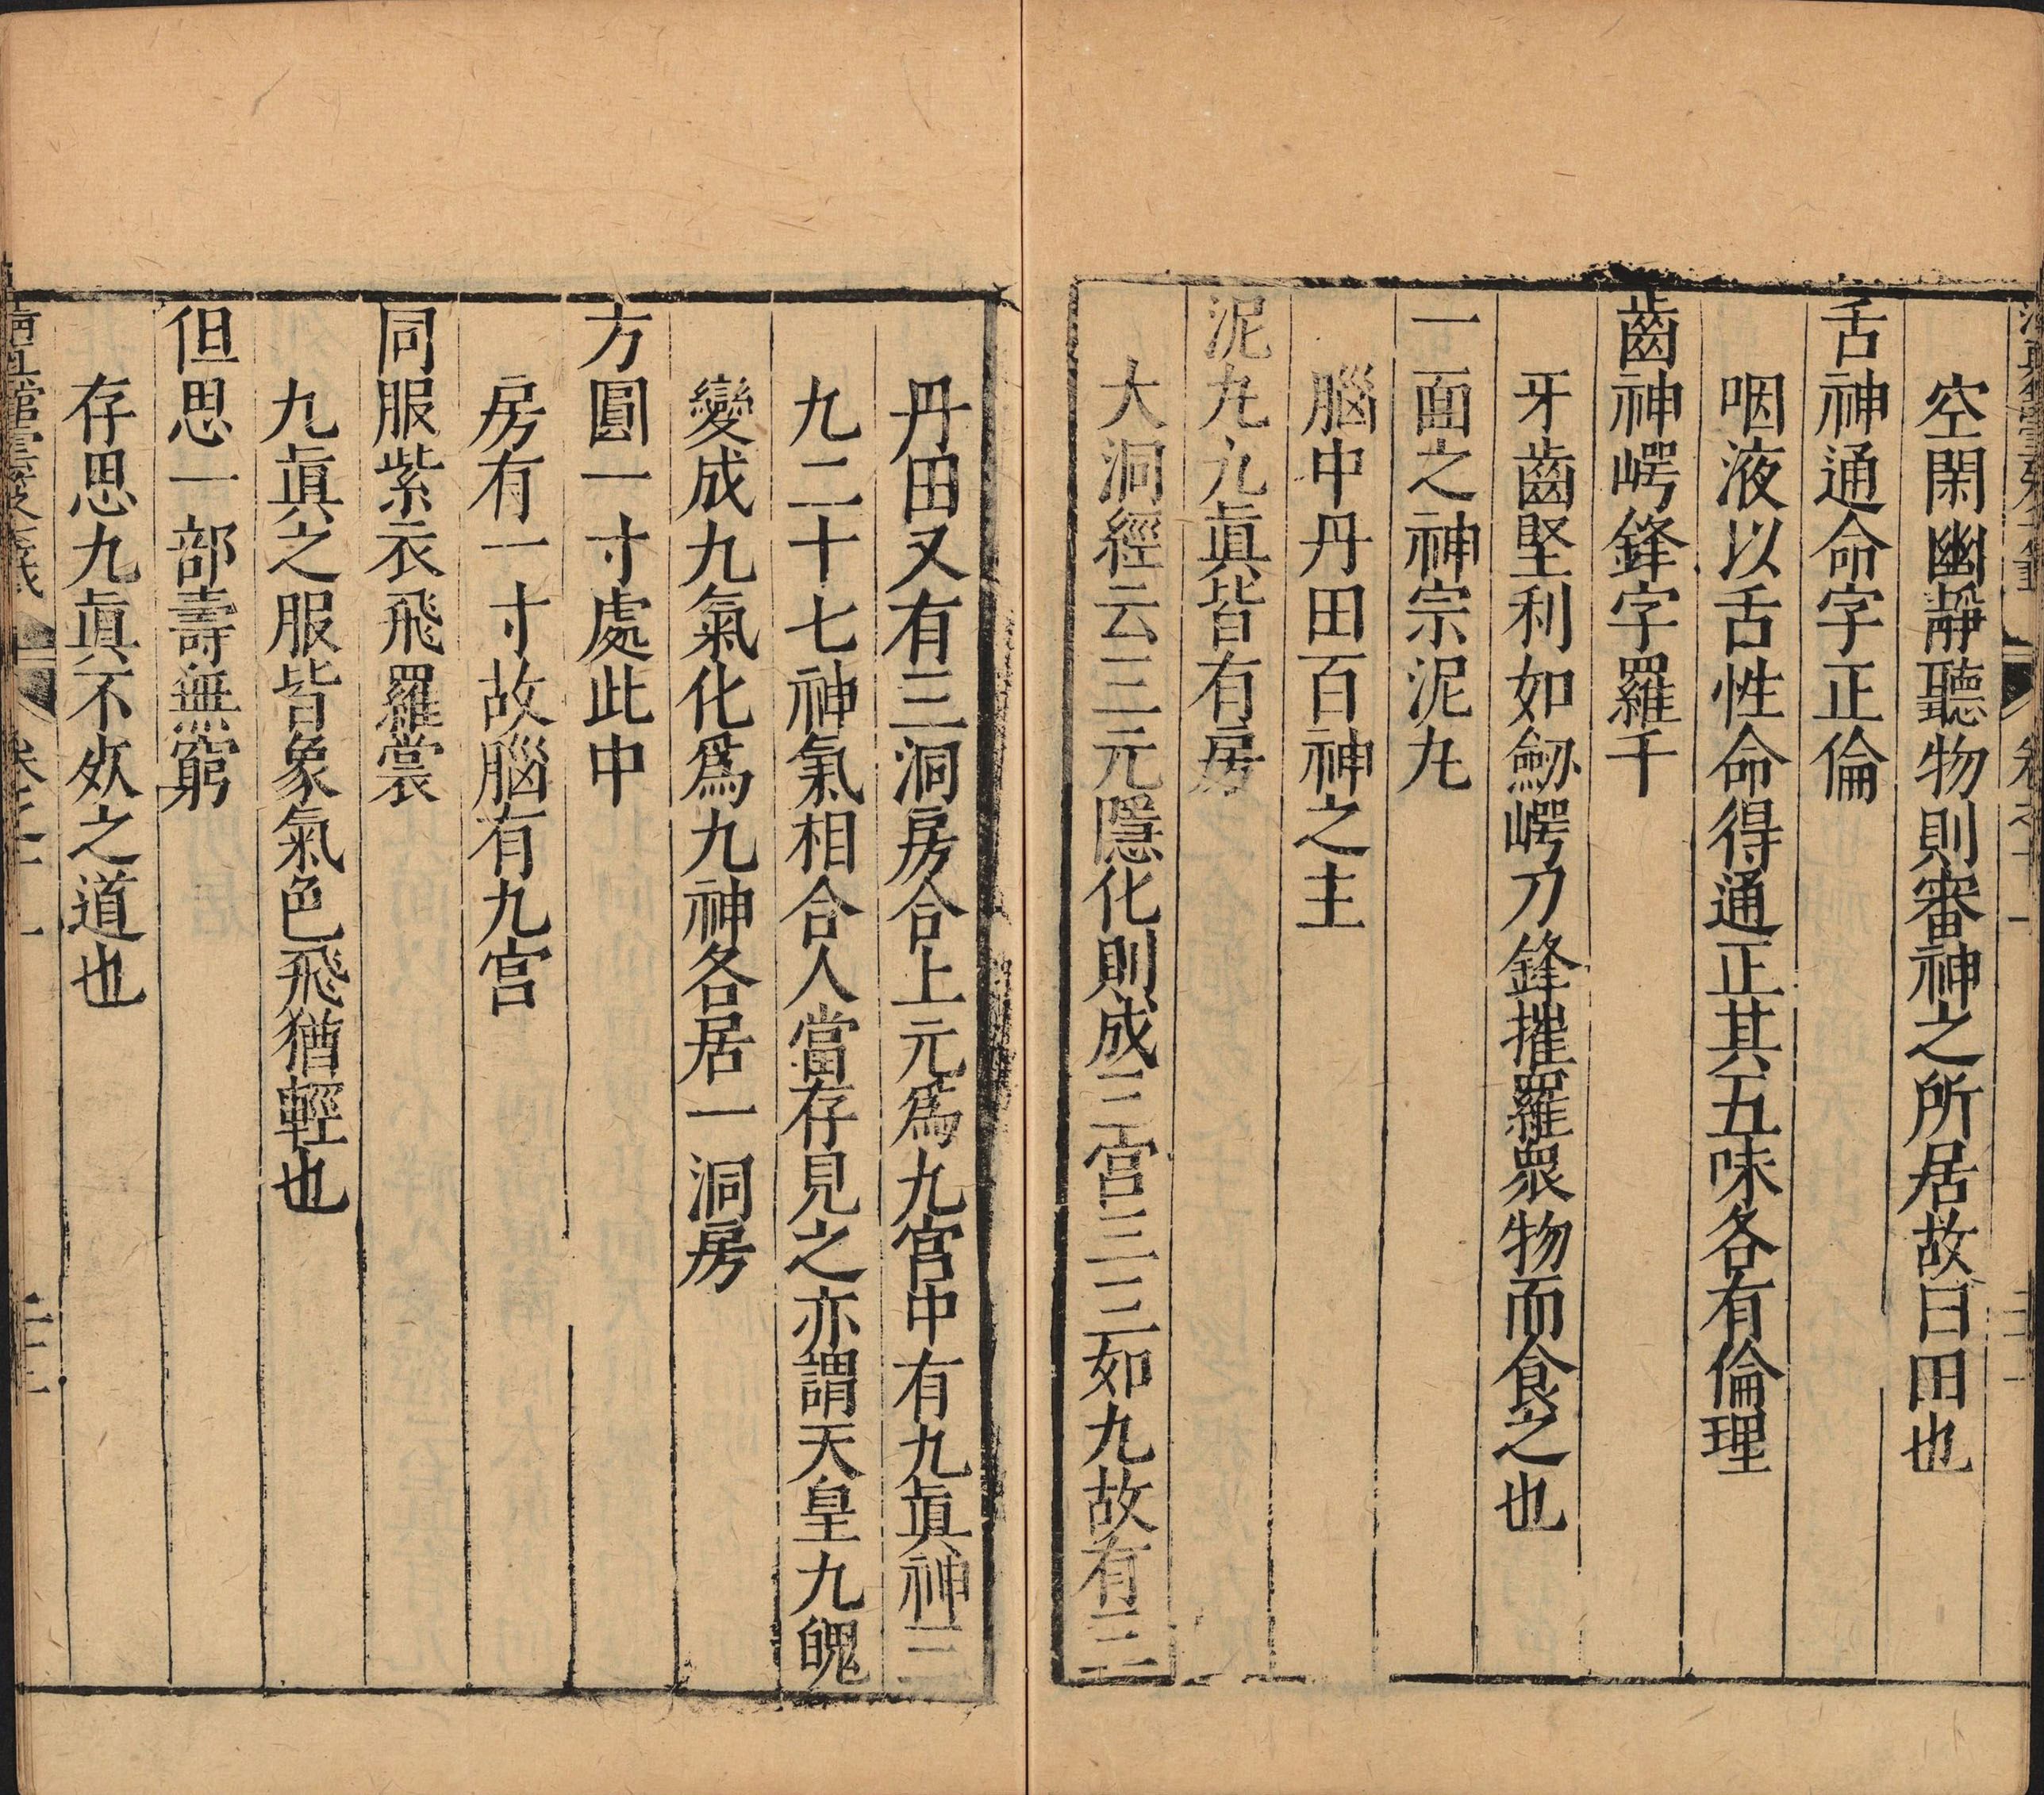 空閑幽靜聽物則審神之所居故曰田也
舌神通命字正倫
咽液以舌性命得通正其五味各有倫理
齒神崿鋒字羅千
牙齒堅利如劒崿刀鋒摧羅衆物而食之也
一面之神宗泥丸
腦中丹田百神之主
泥丸九眞皆有房
大洞經云三元隱化則成三宫三三如九故有三
丹田又有三洞房合上元爲九宫中有九眞神三
九二十七神氣相合人當存見之亦謂天皇九魄
變成九氣化爲九神各居一洞房
方圓一寸處此中
房有一寸故腦有九宫
同服紫衣飛羅裳
九眞之服皆象氣色飛猶輕也
但思一部壽無窮
存思九眞不㱥之道也
卷之十一